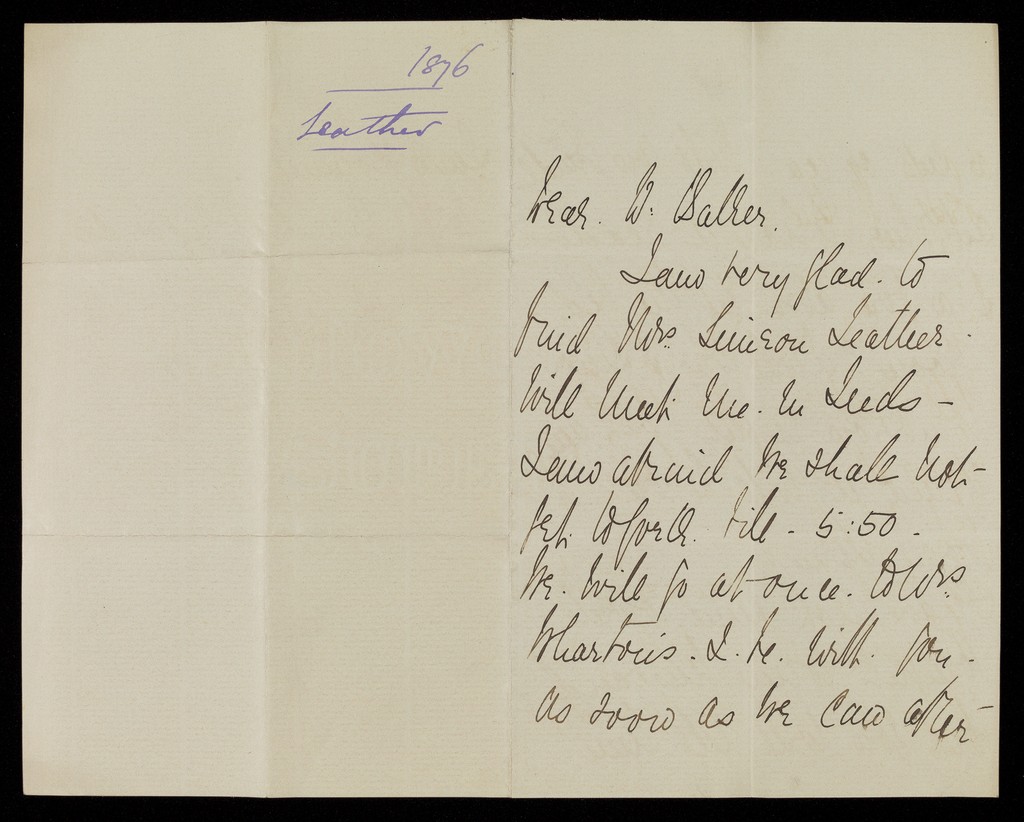 1876
Leather
Dear. Dr. Balker.
I am very glad. to
find Mrs. Simeon Leather.
Will Meet Me. In Leeds -
I am afraid We shall Not
get to York. till - 5:50 -
We. Will go at once. to Mrs.
Whartons. & be. With you -
As soon as We Can after